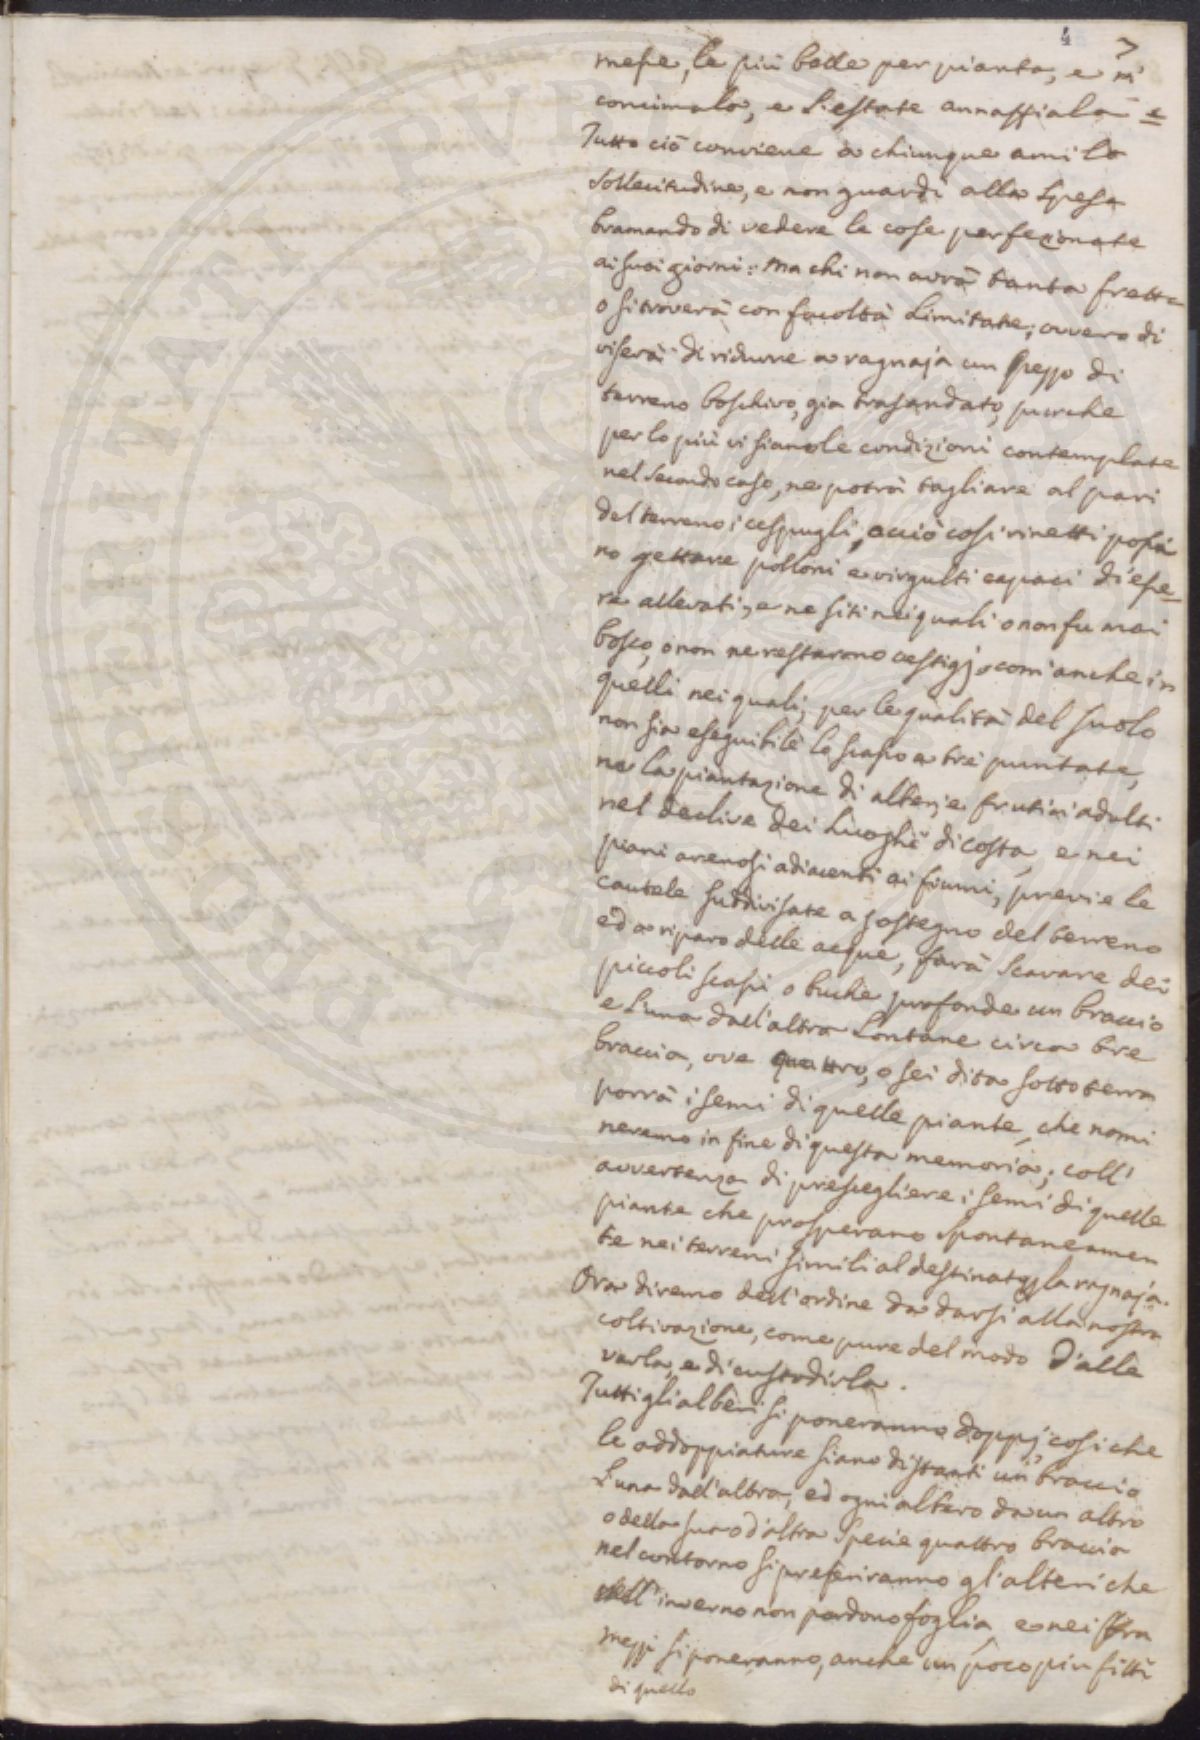 4 7
messe, le più belle per pianta, e ri
concimala, e l'estate annaffiala e
Tutto ciò conviene a chiunque ami la
sollecitudine, e non guardi alla spesa
bramando di vedere le cose perfezionate
ai suoi giorni: ma chi non avrà tanta fretta
o si troverà con facoltà limitate; ovvero di
viserà di ridurre a ragnaja un pezzo di
terreno boschivo, gia trasandato, purche
per lo più vi siano le condizioni contemplate
nel secondo caso, ne potrà tagliare al pari
del terreno i cespugli, acciò così rinetti possa
no gettare polloni e virgulti capaci di esse=
re allevati; e ne siti nei quali o non fu mai
bosco, o non ne restarono vestigj, com'anche in
quelli nei quali, per le qualità del suolo
non sia eseguibile lo scasso a tre puntate,
ne la piantazione di alberi, e frutici adulti
nel declive dei luoghi di costa, e nei
piani arenosi adiacenti ai fiumi, previe le
cautele suddivisate a sostegno del terreno
ed a riparo delle acque, farà scavare dei
piccoli scassi o buche profonde un braccio
e l'una dall'altra lontane circa tre
braccia, ove quattro, o sei dita sotto terra
porrà i semi di quelle piante, che nomi
neremo in fine di questa memoria; coll'
avvertenza di prescegliere i semi di quelle
piante che prosperano spontaneamen
te nei terreni simili al destinato p la ragnaja.
Ora diremo dell'ordine da darsi alla nostra
coltivazione, come pure del modo d'alle
varla, e di custodirla.
Tutti gli alberi si poneranno doppj, così che
le addoppiature siano distanti un braccio
l'una dall'altra, ed ogni albero da un altro
o della sua o d'altra specie quattro braccia
nel contorno si preferiranno gl'alberi che
nell'inverno non perdono foglia, e nei fra
mezzi si poneranno, anche un poco più fitti
di quello